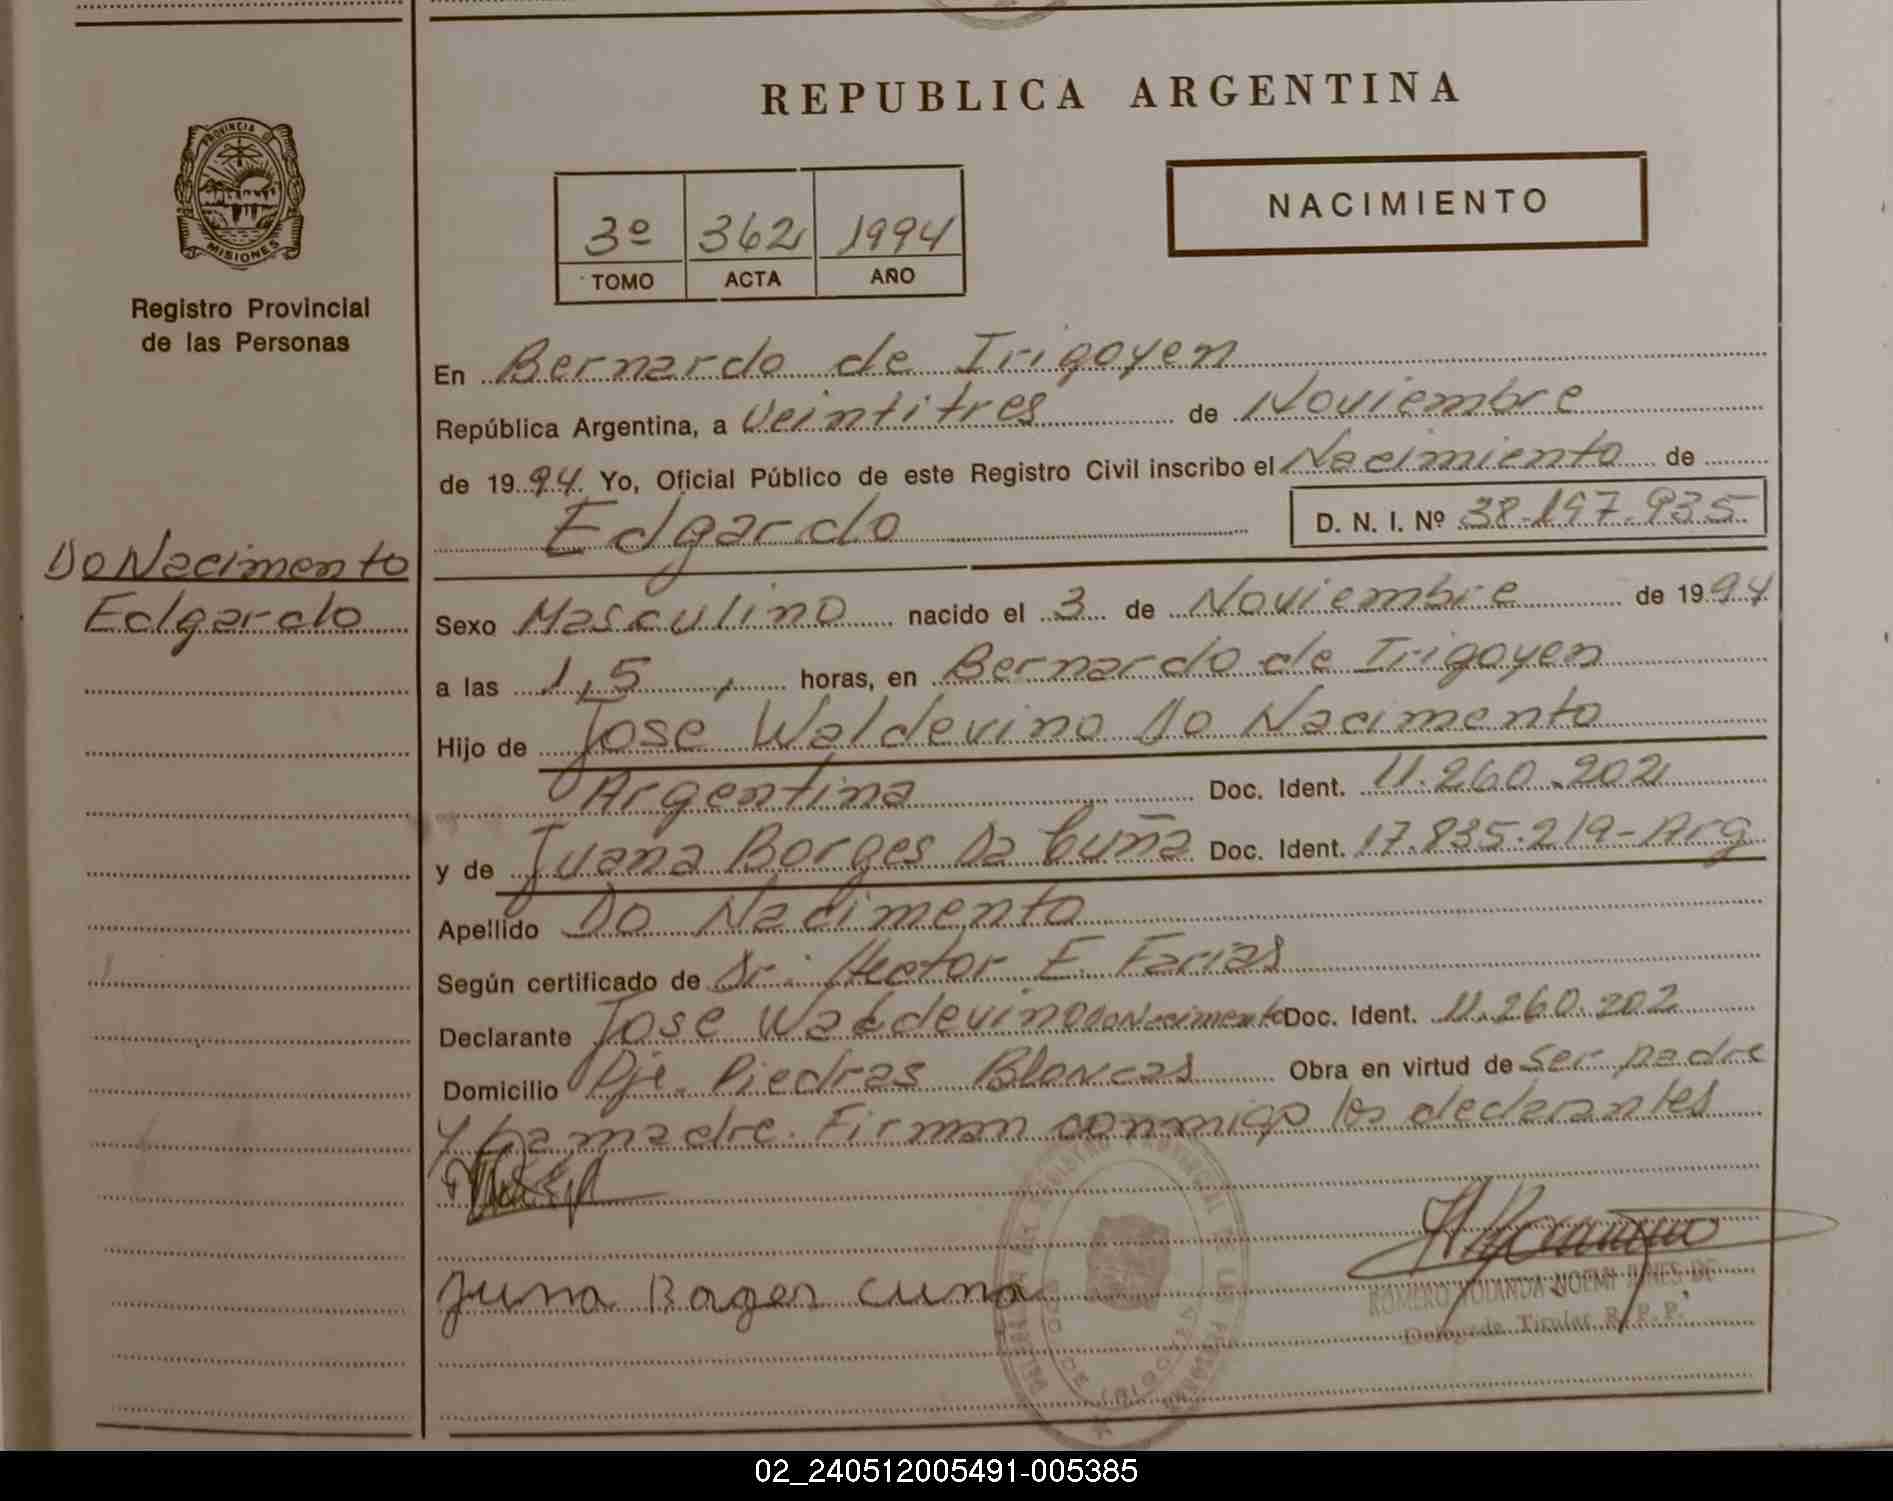 REPUBLICA ARGENTINA
PROVINCIA D
MISIONES
Registro Provincial
de las Personas
3º 362 1994
TOMO ACTA AÑO
NACIMIENTO
En Bernardo de Irigoyen
República Argentina, a Veintitres de Noviembre
de 1994 Yo, Oficial Público de este Registro Civil inscribo el Nacimiento de
Edgardo D. N. I. Nº 38.197.935
Do Nacimento
Edgardo
Sexo Masculino nacido el 3 de Noviembre de 1994
a las 1,5, horas, en Bernardo de Irigoyen
Hijo de Jose Waldevino Do Nacimento
Argentina Doc. Ident. 11.260.202
y de Juana Borges Da Cuña Doc. Ident. 17.835.219-Arg
Apellido Do Nacimento
Según certificado de Dr. Hector E. Farias
Declarante Jose Waldevino Do Nacimento Doc. Ident. 11.260.202
Domicilio Pje. Piedras Blancas Obra en virtud de ser padre
y la madre. Firman conmigo los declarantes
Juna Bages cuna
ROMERO YOLANDA NOEMI DE
Delegada Titular R.P.P.
02_240512005491-005385